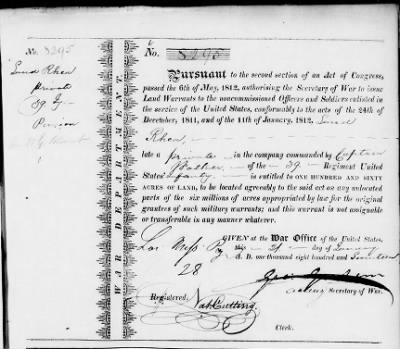 No. 5295
No. 5295
Pursuant to the second section of an Act of Congress,
passed the 6th of May, 1812, authorising the Secretary of War to issue
Land Warrants to the noncommissioned Officers and Soldiers enlisted in
the service of the United States, conformably to the acts of the 24th of
December, 1811, and of the 11th of January, 1812,
Rhea,
late a private in the company commanded by Captain
of the 39 Regiment United
States' Infantry is entitled to ONE HUNDRED AND SIXTY
ACRES OF LAND, to be located agreeably to the said act on any unlocated
parts of the six millions of acres appropriated by law for the original
grantees of such military warrants; and this warrant is not assignable
or transferable in any manner whatever.
GIVEN at the War Office of the United States,
this day of January
A. D. one thousand eight hundred and
28
Geo Graham
acting Secretary of War.
Registered,
Nat Cutting
Clerk.
Rhea
private
39
WAR DEPARTMENT.